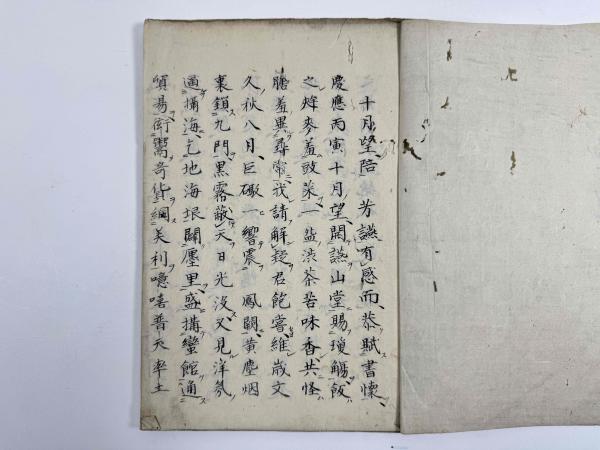 十月望陪芳讌有感而恭賦書懷
慶應丙寅十月望開讌山堂賜瓊觴飯
之烽麥羞豉菜一盌渋茶苦味香共怪
膳羞異尋常我請解疑君飽嘗維歳文
久秋八月巨礮一響震鳳闕黄塵烟
裏鎖九門黒霧蔽天日光没又見洋氛
逼攝海乞地海垠闢廛里盛搆蠻館通
貿易衒鬻奇貨網美利噫嘻普天率土